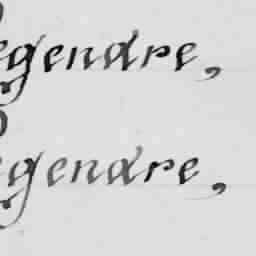 egendre,
egendre,